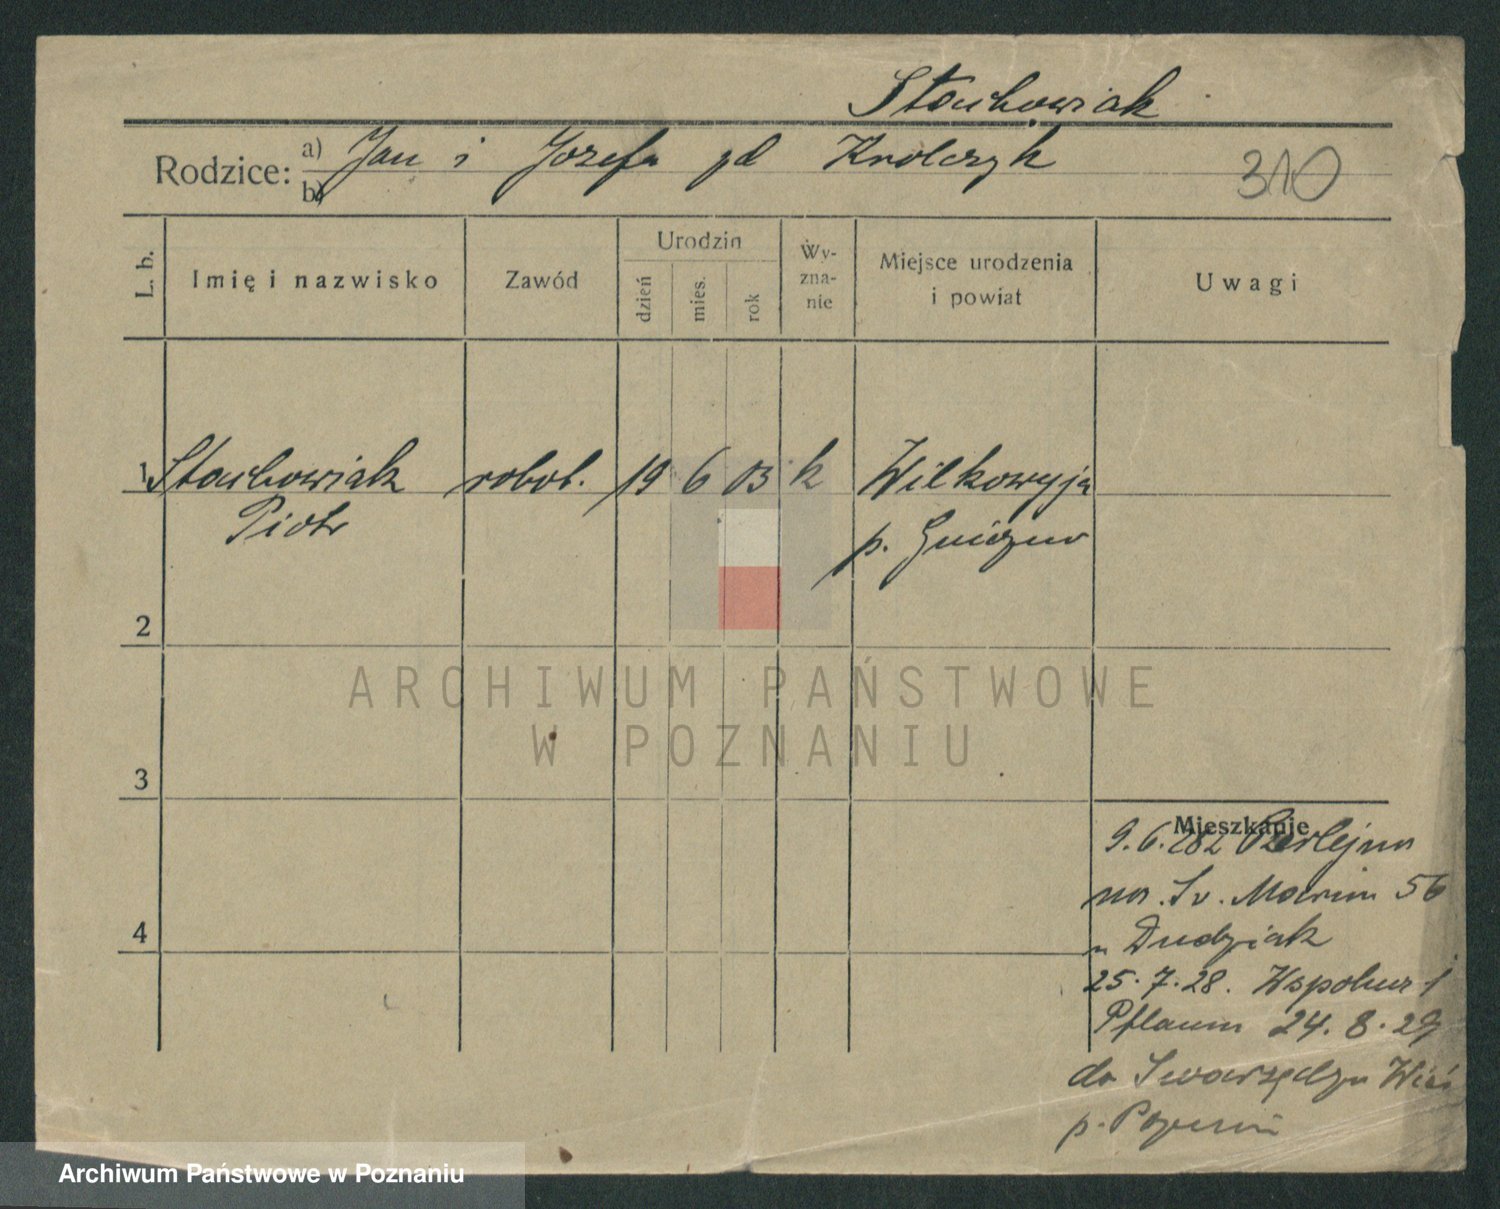 Stachowiak
Rodzice: a) Jan i Józefa zd Krolczyk
b)
310
L. b.
Imię i nazwisko
Zawód
Urodzin
dzień
mies.
rok
Wy-
zna-
nie
Miejsce urodzenia
i powiat
Uwagi
1 Stachowiak robot. 19 6 03 k Wilkowyja
Piotr p. Gniezno
2
3
4
Mieszkanie
9.6.28
na. Św. Marcin 56
u Dudziak
25.7.28. Wspólna 1
Pflaum 24.8.29
do Swarzędza Wieś
p. Poznań
ARCHIWUM PAŃSTWOWE
W POZNANIU
Archiwum Państwowe w Poznaniu